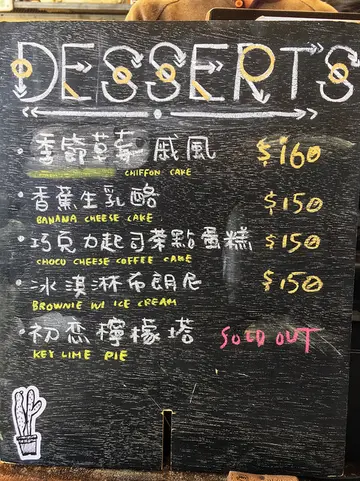 DESSERTS
季節草莓 戚風 $160
CHIFFON CAKE
香蕉生乳酪 $150
BANANA CHEESE CAKE
巧克力起司茶點蛋糕 $150
CHOCO CHEESE COFFEE CAKE
冰淇淋布朗尼 $150
BROWNIE W/ ICE CREAM
初恋檸檬塔 SOLD OUT
KEY LIME PIE